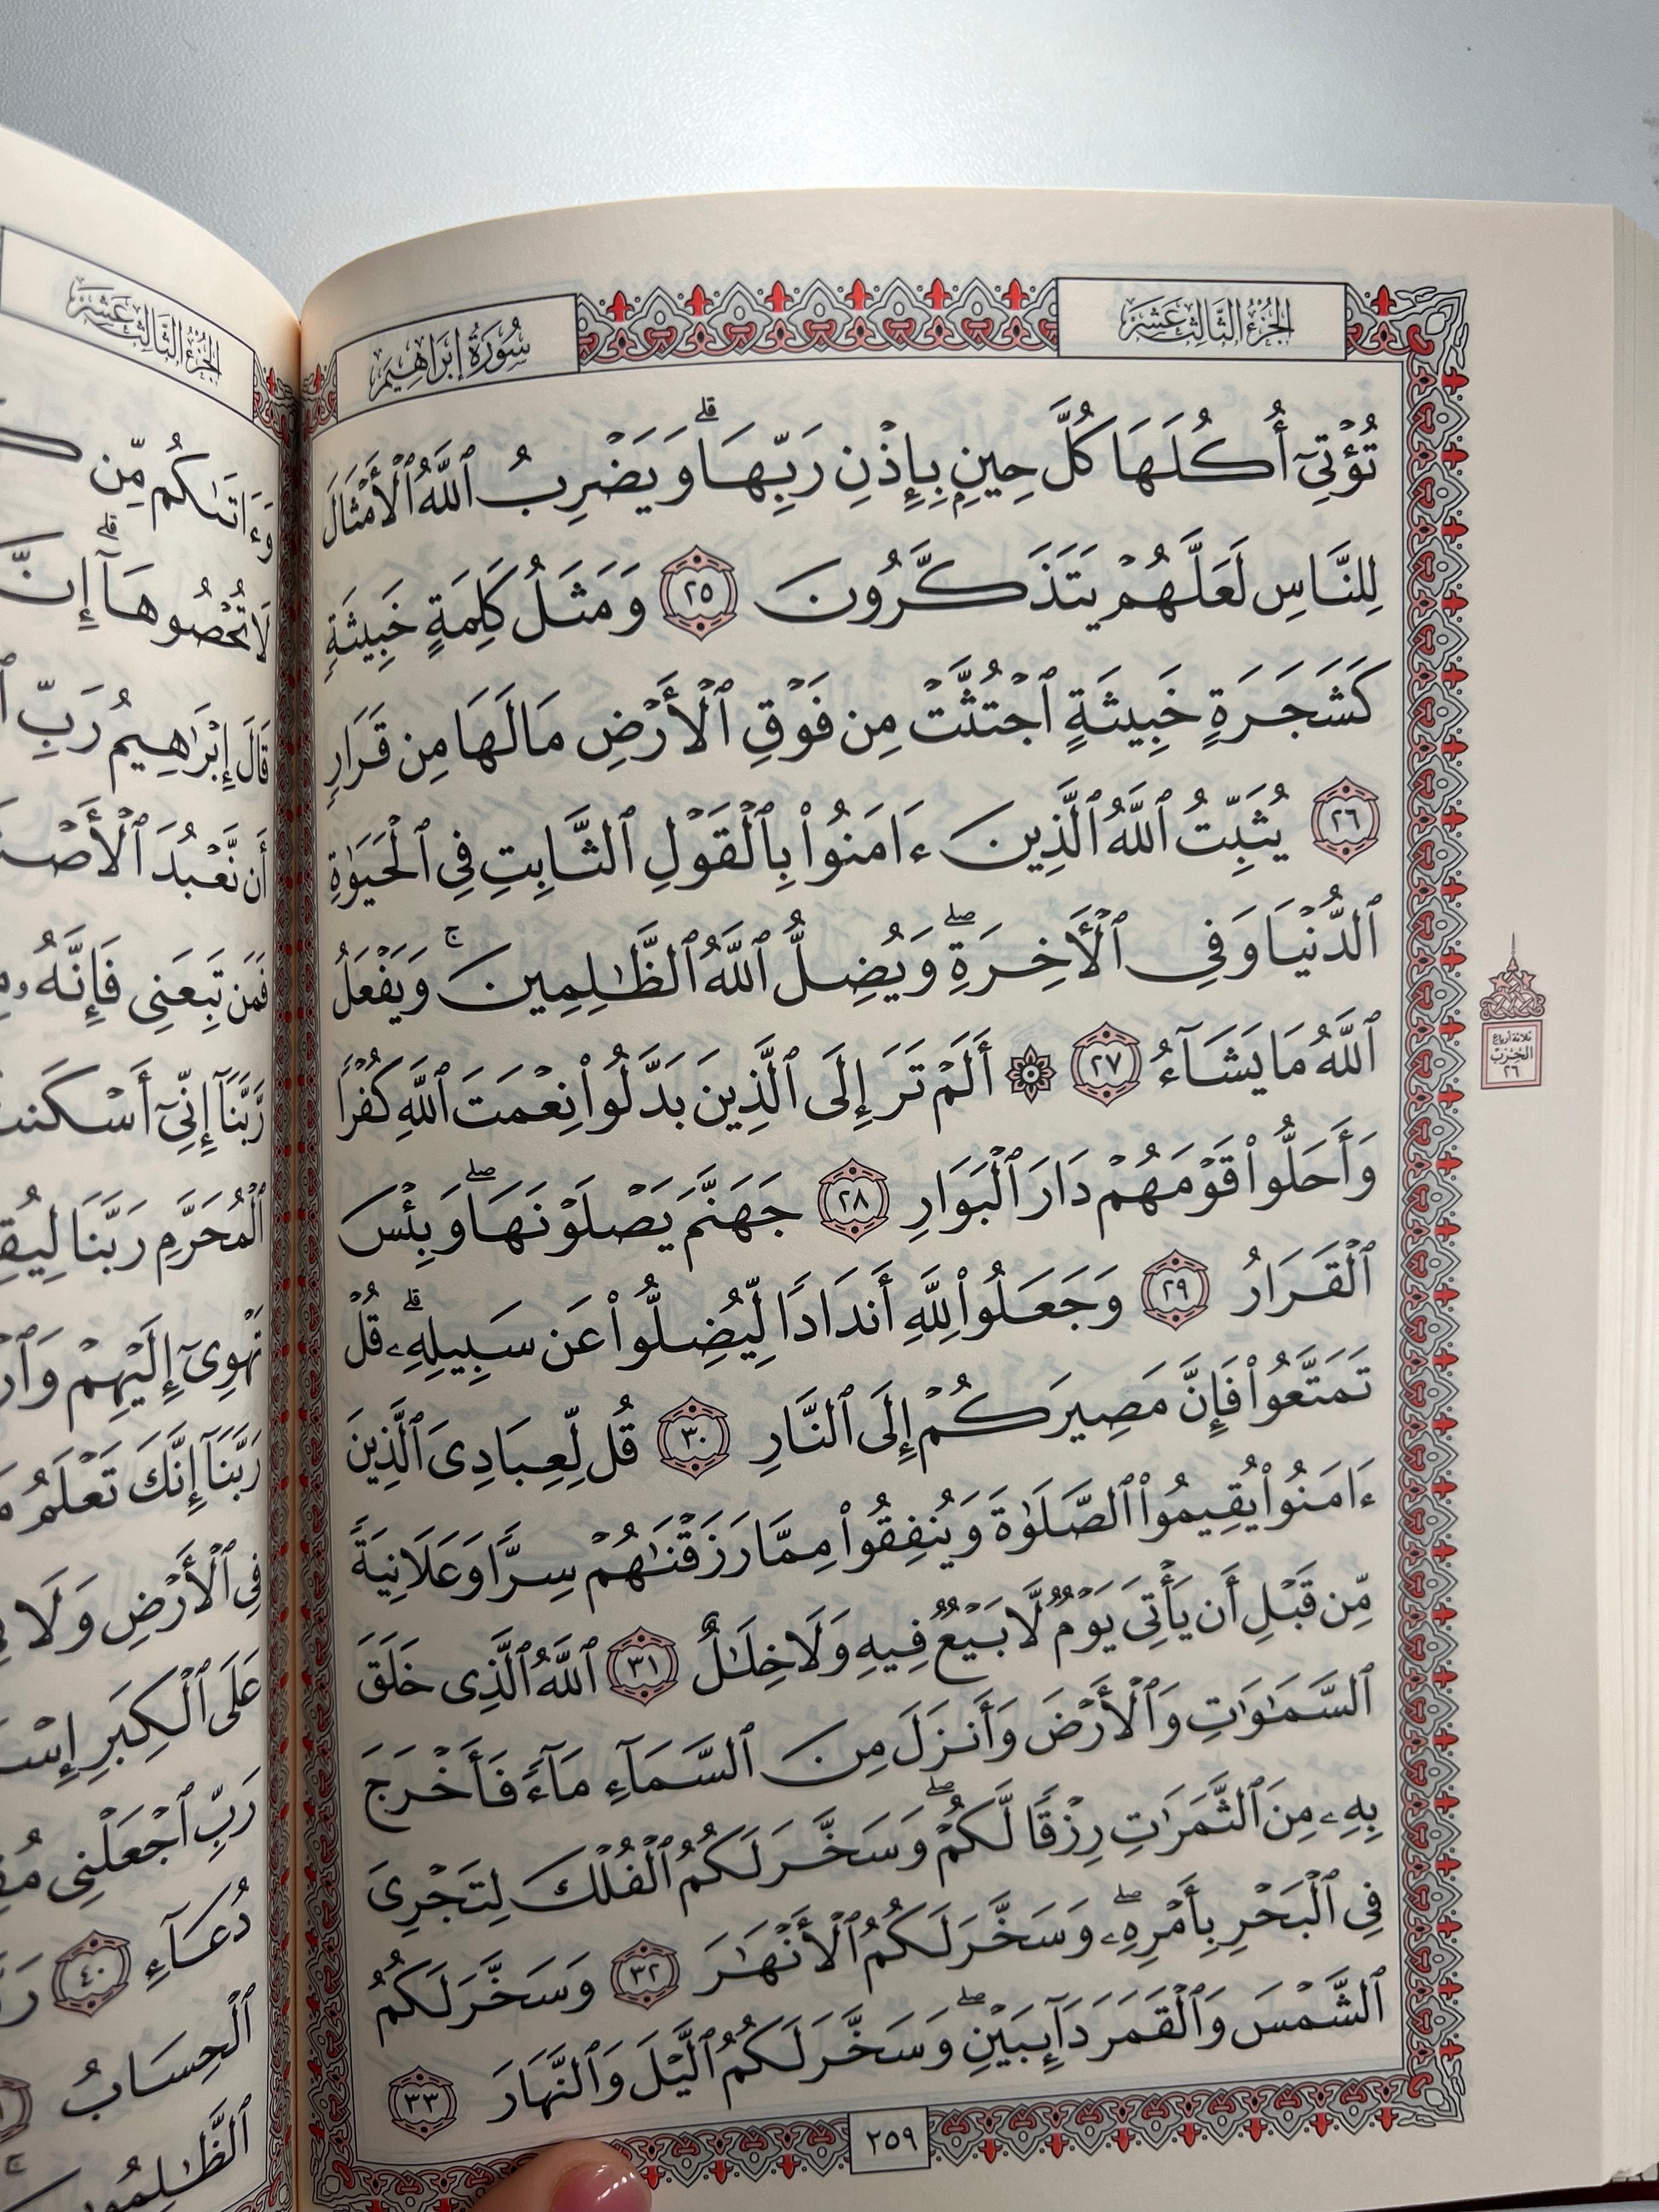 الجزء الثالث عشر
سورة إبراهيم
تُؤْتِىٓ أُكُلَهَا كُلَّ حِينٍۭ بِإِذْنِ رَبِّهَا ۗ وَيَضْرِبُ ٱللَّهُ ٱلْأَمْثَالَ
لِلنَّاسِ لَعَلَّهُمْ يَتَذَكَّرُونَ ٢٥ وَمَثَلُ كَلِمَةٍ خَبِيثَةٍ
كَشَجَرَةٍ خَبِيثَةٍ ٱجْتُثَّتْ مِن فَوْقِ ٱلْأَرْضِ مَا لَهَا مِن قَرَارٍ
٢٦ يُثَبِّتُ ٱللَّهُ ٱلَّذِينَ ءَامَنُوا۟ بِٱلْقَوْلِ ٱلثَّابِتِ فِى ٱلْحَيَوٰةِ
ٱلدُّنْيَا وَفِى ٱلْأَخِرَةِ ۖ وَيُضِلُّ ٱللَّهُ ٱلظَّـٰلِمِينَ ۚ وَيَفْعَلُ
ٱللَّهُ مَا يَشَآءُ ٢٧ ۞ أَلَمْ تَرَ إِلَى ٱلَّذِينَ بَدَّلُوا۟ نِعْمَتَ ٱللَّهِ كُفْرًا
وَأَحَلُّوا۟ قَوْمَهُمْ دَارَ ٱلْبَوَارِ ٢٨ جَهَنَّمَ يَصْلَوْنَهَا ۖ وَبِئْسَ
ٱلْقَرَارُ ٢٩ وَجَعَلُوا۟ لِلَّهِ أَندَادًا لِّيُضِلُّوا۟ عَن سَبِيلِهِۦ ۗ قُلْ
تَمَتَّعُوا۟ فَإِنَّ مَصِيرَكُمْ إِلَى ٱلنَّارِ ٣٠ قُل لِّعِبَادِىَ ٱلَّذِينَ
ءَامَنُوا۟ يُقِيمُوا۟ ٱلصَّلَوٰةَ وَيُنفِقُوا۟ مِمَّا رَزَقْنَـٰهُمْ سِرًّا وَعَلَانِيَةً
مِّن قَبْلِ أَن يَأْتِىَ يَوْمٌ لَّا بَيْعٌ فِيهِ وَلَا خِلَـٰلٌ ٣١ ٱللَّهُ ٱلَّذِى خَلَقَ
ٱلسَّمَـٰوَٰتِ وَٱلْأَرْضَ وَأَنزَلَ مِنَ ٱلسَّمَآءِ مَآءً فَأَخْرَجَ
بِهِۦ مِنَ ٱلثَّمَرَٰتِ رِزْقًا لَّكُمْ ۖ وَسَخَّرَ لَكُمُ ٱلْفُلْكَ لِتَجْرِىَ
فِى ٱلْبَحْرِ بِأَمْرِهِۦ ۖ وَسَخَّرَ لَكُمُ ٱلْأَنْهَـٰرَ ٣٢ وَسَخَّرَ لَكُمُ
ٱلشَّمْسَ وَٱلْقَمَرَ دَآئِبَيْنِ ۖ وَسَخَّرَ لَكُمُ ٱلَّيْلَ وَٱلنَّهَارَ ٣٣
٢٥٩
ثلاثة أرباع
الحزب
٢٦
الجزء الثالث عشر
وَءَاتَىٰكُم مِّن
لَا تُحْصُوهَآ ۗ إِنَّ
قَالَ إِبْرَٰهِيمُ رَبِّ
أَن نَّعْبُدَ
فَمَن تَبِعَنِى فَإِنَّهُۥ
رَّبَّنَآ إِنِّىٓ
ٱلْمُحَرَّمِ رَبَّنَا
تَهْوِىٓ إِلَيْهِمْ
رَبَّنَآ إِنَّكَ تَعْلَمُ
فِى ٱلْأَرْضِ وَلَا
عَلَى ٱلْكِبَرِ
رَبِّ ٱجْعَلْنِى
دُعَآءِ ٤٠
ٱلْحِسَابُ
ٱلظَّـٰلِمُونَ